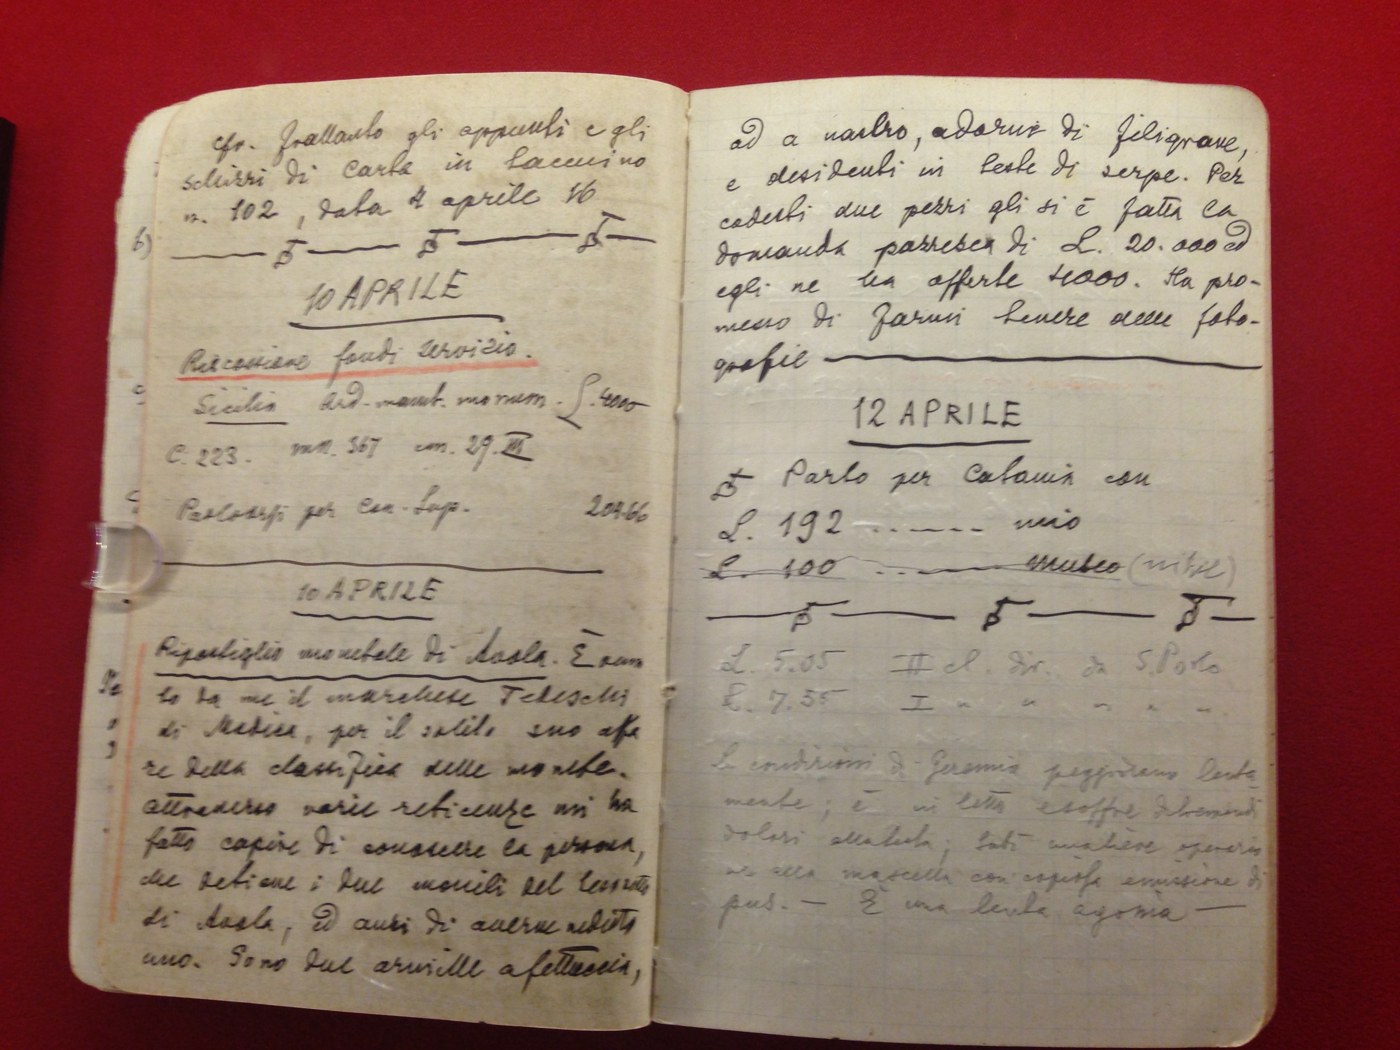 cfr. frattanto gli appunti e gli
schizzi di Carta in taccuino
n. 102, data 4 aprile 16
10 APRILE
Riscossione fondi servizio.
Sicilia ord. manut. monum. L. 4000
C. 223. man. 367 con. 29. III
Paolo Orsi per Con. Sup. 204.66
10 APRILE
Ripostiglio monetale di Avola. È venu
to da me il marchese Tedeschi
di Modica, per il solito suo affa
re della classifica delle monete.
attraverso varie reticenze mi ha
fatto capire di conoscere la persona,
che detiene i due monili del tesoretto
di Avola, ed anzi di averne veduto
uno. Sono due armille a fettuccia,
od a nastro, adorne di filigrane,
e desidenti in teste di serpe. Per
codesti due pezzi gli si è fatta la
domanda pazzesca di L. 20.000 ed
egli ne ha offerte 4000. Ha pro-
messo di farmi tenere delle foto-
grafie
12 APRILE
Parto per Catania con
L. 192 ...... mio
L. 100 ...... museo
L. 5.05 III cl. dir. da S. Paolo
L. 7.55 I " " " " "
Le condizioni di Geremia peggiorano lenta
mente; è in letto e soffre
dolori alla testa; subì un'altra operazio
ne alla mascella con copiosa emissione di
pus. — È una lenta agonia —